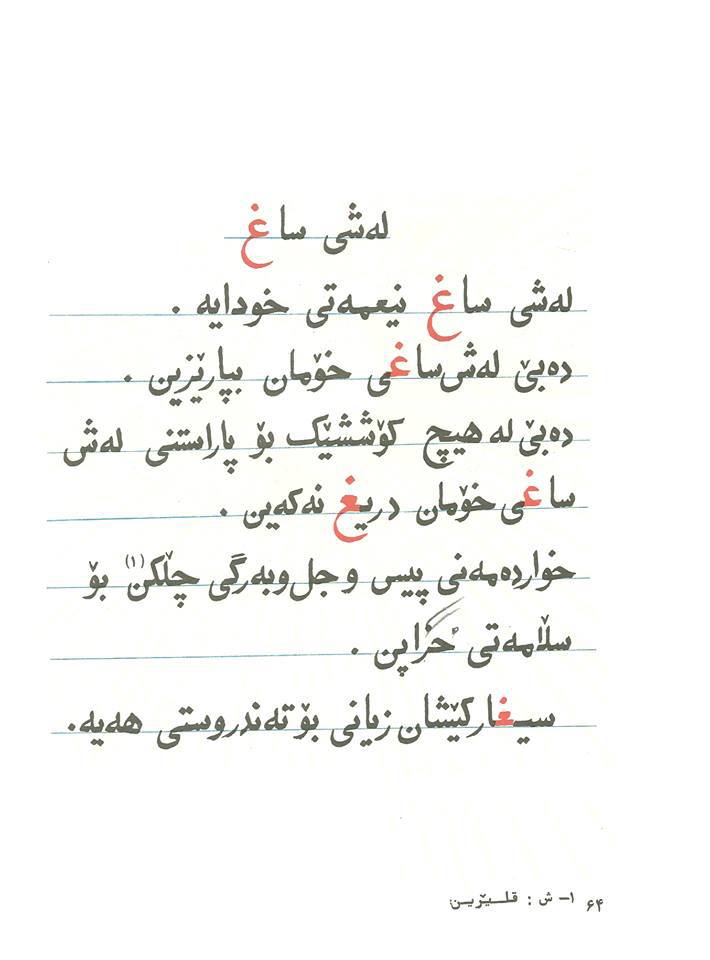 لەشی ساغ
لەشی ساغ نیعمەتی خودایە .
دەبێ لەش‌ساغی خۆمان بپارێزین .
دەبێ لە هیچ کۆششێک بۆ پاراستنی لەش
ساغی خۆمان دریغ نەکەین .
خواردەمەنی پیس و جل‌وبەرگی چڵکن(۱) بۆ
سڵامەتی خراپن .
سیغارکێشان زیانی بۆ تەندروستی هەیە.
۱- ش : قلـێرین
۶۴